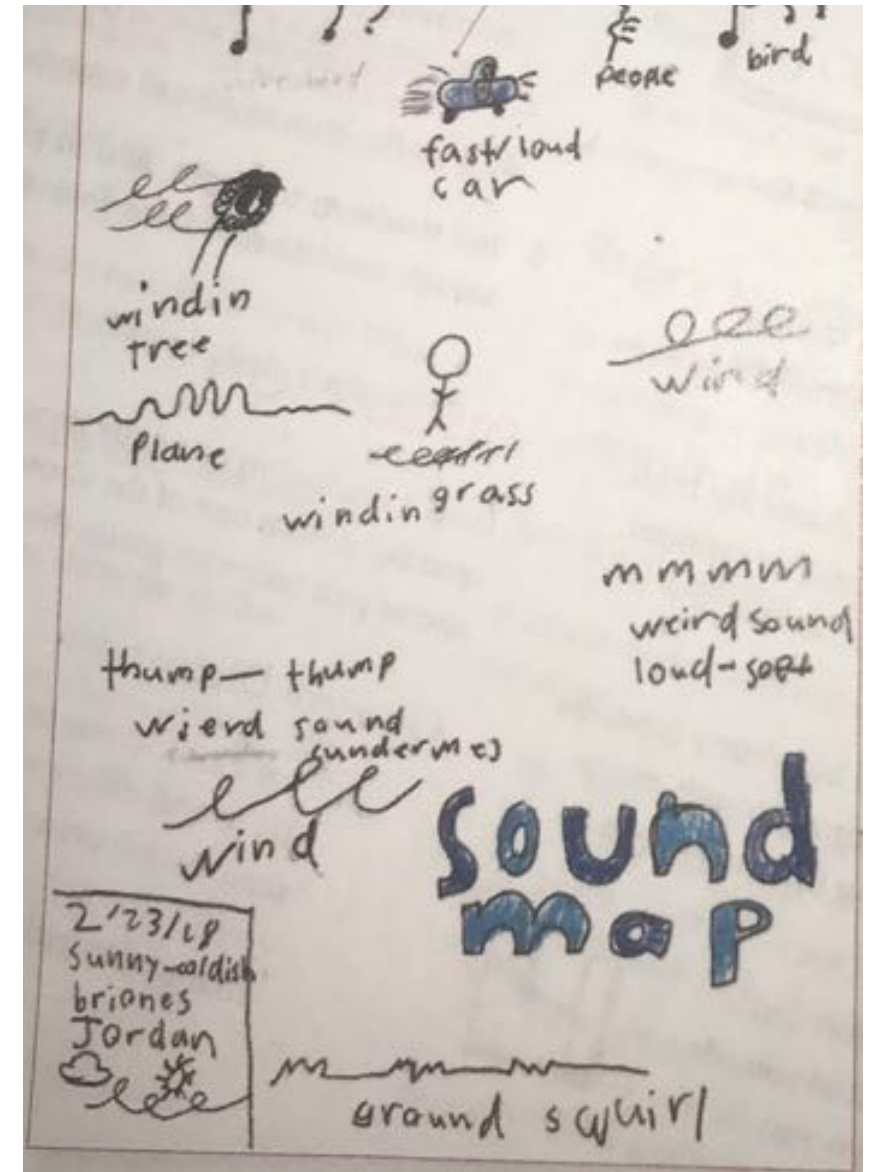 people
bird
fast/loud
car
windin
tree
wind
Plane
windin grass
mmmm
weird sound
loud-soft
thump— thump
wierd sound
(underme)
wind
sound
map
2/23/18
Sunny-coldish
briones
Jordan
ground squirl